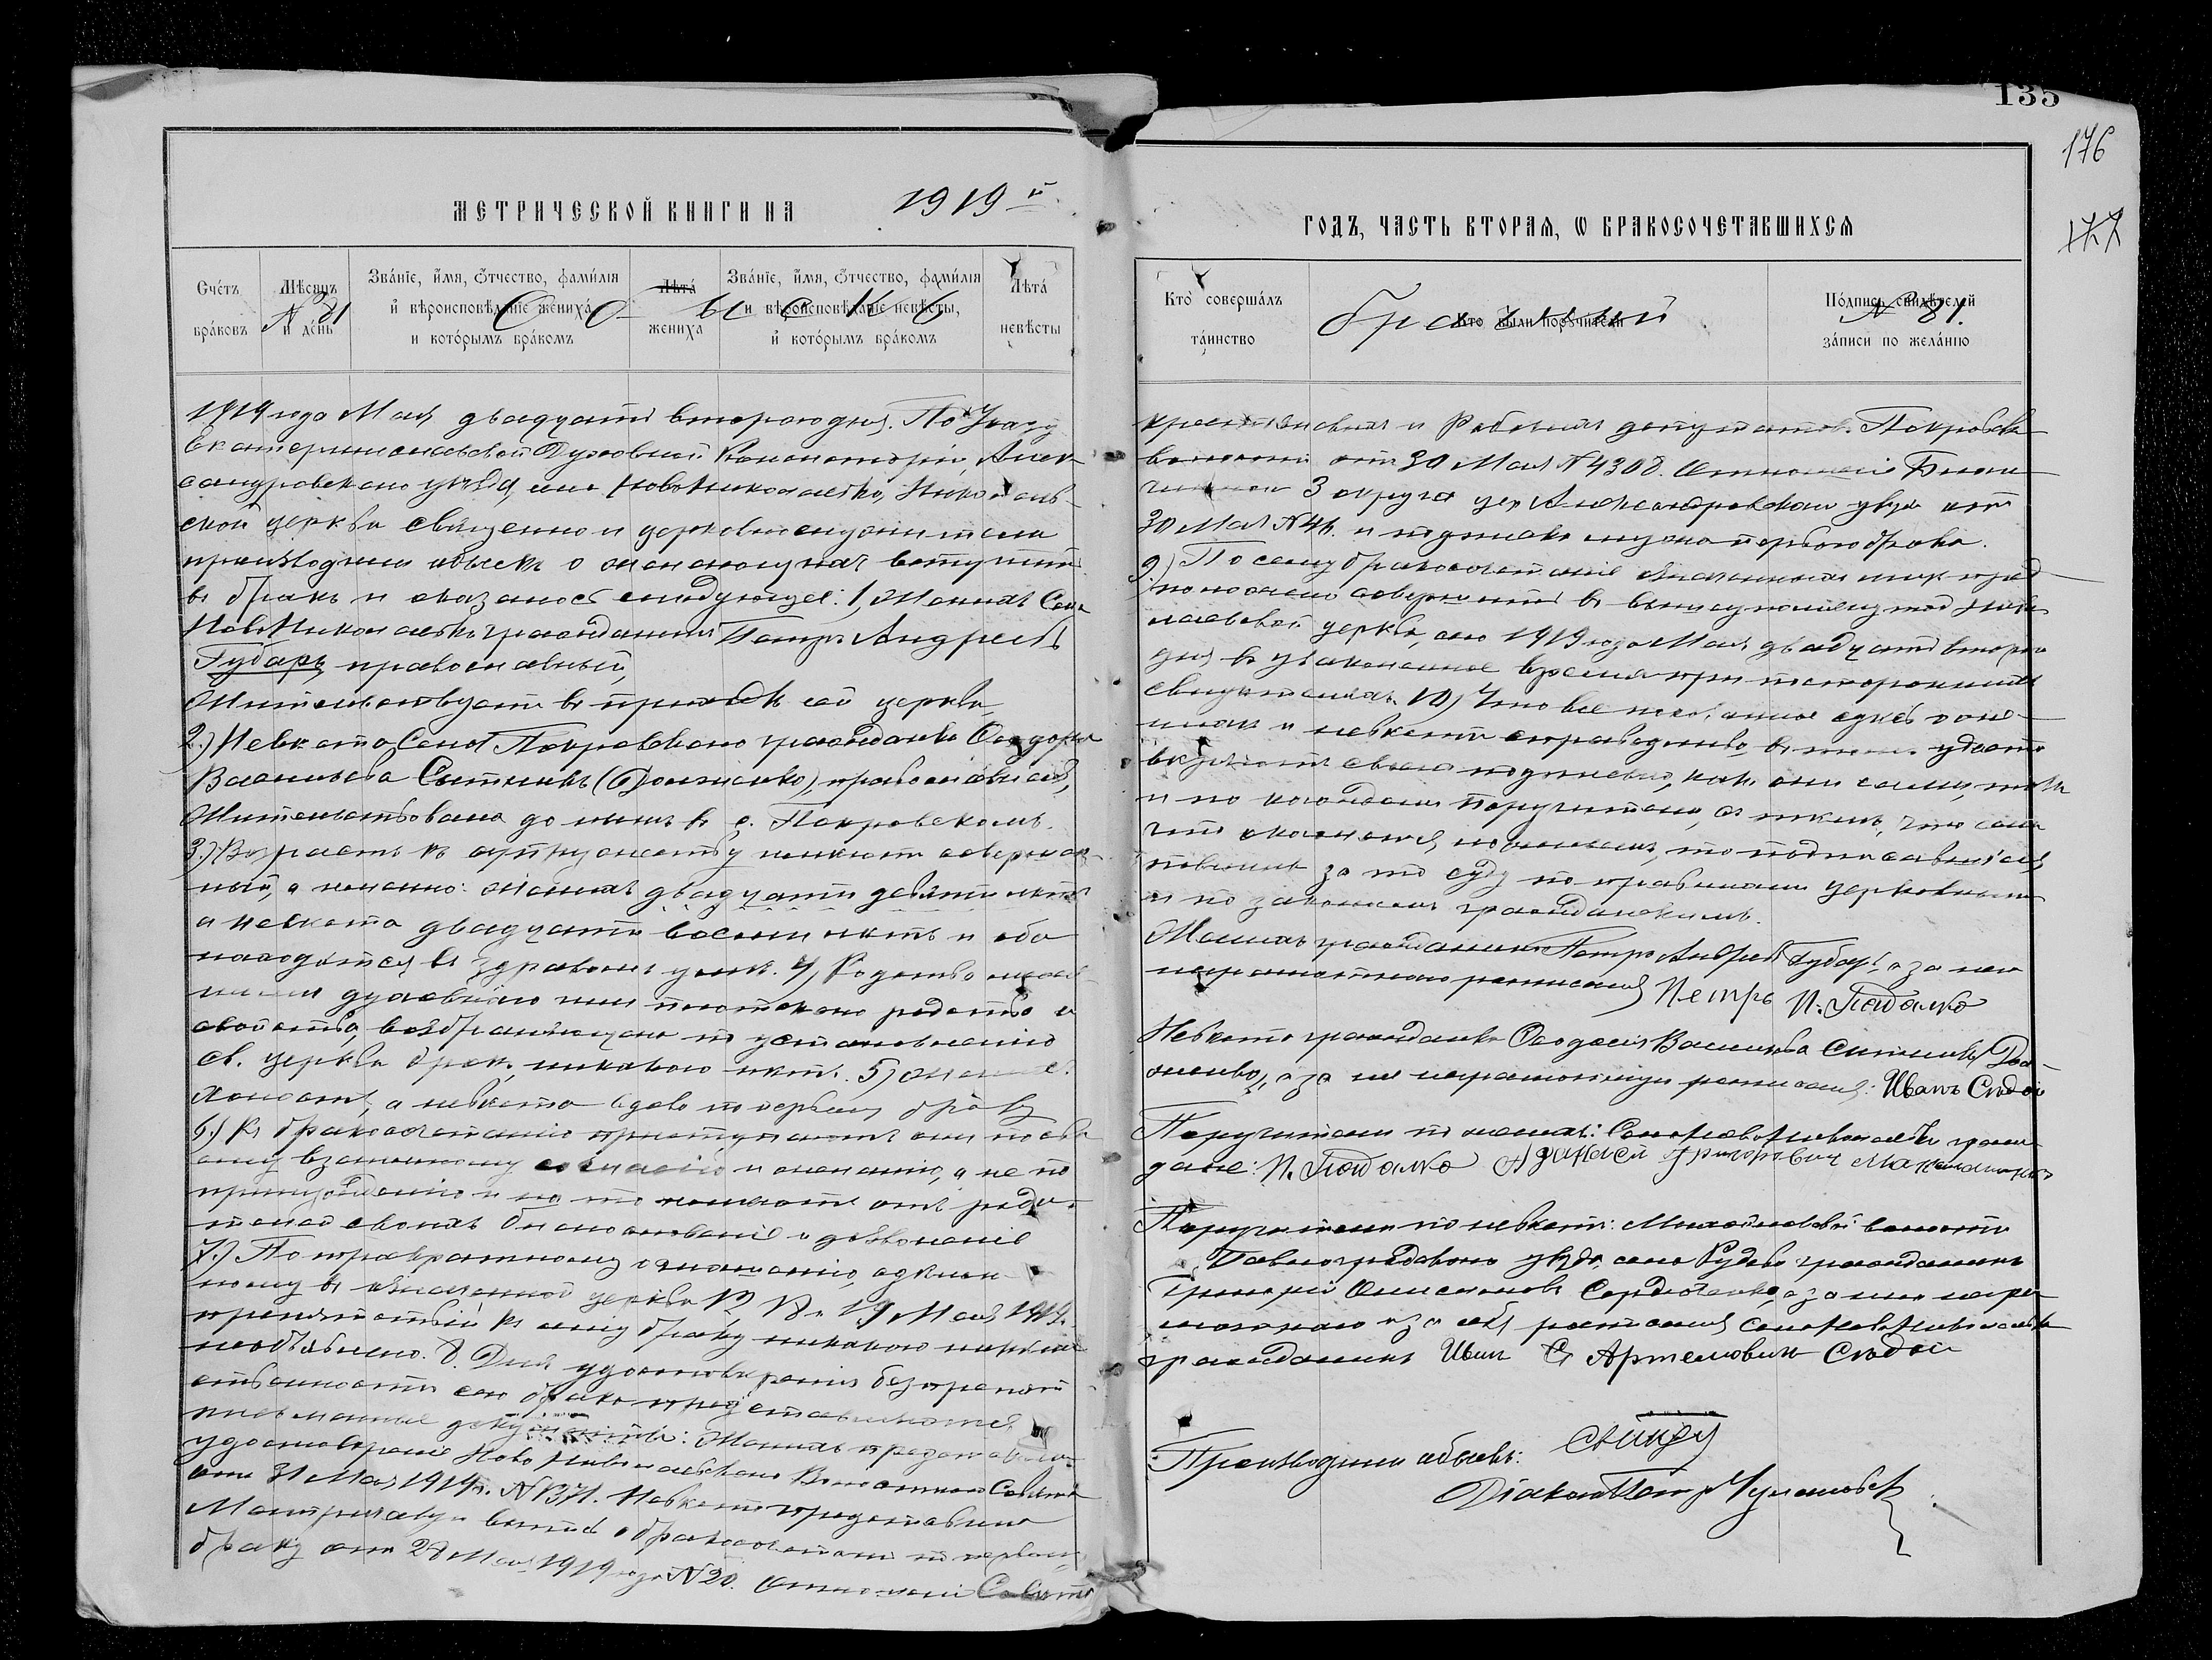 135
176
177
МЕТРИЧЕСКОЙ КНИГИ НА 1919 й
Счетъ браковъ
Мѣсяцъ и день
Званїе, имя, отчество, фамилїя и вѣроисповѣданїе жениха и которымъ бракомъ
Лѣта жениха
Званїе, имя, отчество, фамилїя и вѣроисповѣданїе невѣсты, и которымъ бракомъ
Лѣта невѣсты
№ 81 Обыскъ
1919 года Мая двадцать второго дня. По Указу
Екатеринославской Духовной Консисторіи, Алек-
сандровскаго уѣзда, села Ново Николаевки, Николаев-
ской церкви священно и церковнослужители
производили обыскъ о желающихъ вступить
въ бракъ и оказалось слѣдующее: 1, Женихъ Села
Ново Николаевки гражданинъ Петръ Андреевъ
Губарь, православный,
Жительствуетъ въ приходѣ сей церкви
2.) Невѣста Села Покровскаго гражданка Ѳеодосія
Васильева Сытникъ (Долженко), православная,
Жительствовала до нынѣ въ с. Покровскомъ.
3.) Возрастъ къ супружеству имѣютъ совершен-
ный, а именно: женихъ двадцати девяти лѣтъ
а невѣста двадцати восьми лѣтъ и оба
находятся въ здравомъ умѣ. 4, Родства между
ними духовнаго или плотскаго родства и
свойства, возбраняющаго по установленію
св. церкви бракъ, никакого нѣтъ. 5) Женихъ
холостъ, а невѣста вдова по первому браку
6.) Къ бракосочетанію приступаютъ они по сво-
ему взаимному согласію и желанію, а не по
принужденію и на то имѣютъ отъ роди-
телей своихъ благословеніе и дозволеніе
7.) По троекратному оглашенію, сдѣлан-
ному въ означенной церкви 12, 18 и 19 Мая 1919.
препятствій къ сему браку никакого никѣмъ
необъявлено. 8. Для удостовѣренія безпрепят-
ственности сего брака представляются
письменные документы: Женихъ представилъ
удостовѣреніе Ново Николаевскаго Волостного Совѣта
отъ 31 Мая 1919 г. № 1371. Невѣста представила
Метрическую выпись о бракосочетаніи по первому
браку отъ 28 Мая 1919 года № 20. Отношеніе Совѣта
ГОДЪ, ЧАСТЬ ВТОРАЯ, Ѡ БРАКОСОЧЕТАВШИХСЯ
Кто совершалъ таинство
Кто были поручители
Подпись свидѣтелей записи по желанію
Брачный № 81.
крестьянскихъ и Рабочихъ депутатовъ Покровской
волости отъ 30 Мая № 4308. Отношеніе Благо-
чиннаго 3 округа цер. Александровскаго уѣзда отъ
30 Мая № 46. и
9) По сему бракосочетаніе означенныхъ лицъ пред-
положено совершить въ вышеупомянутой Нико-
лаевской церкви, сего 1919 года Мая двадцать второго
дня въ узаконенное время при постороннихъ
свидѣтеляхъ. 10) Что все показанное здѣсь о жe-
нихѣ и невѣстѣ справедливо, въ томъ удосто-
вѣряютъ своею подписью, какъ они сами, такъ
и по каждомъ поручители, съ тѣмъ, что если
что окажется ложнымъ, то подписавшіеся
повинны за то суду по правиламъ церковнымъ
и по законамъ гражданскимъ.
Женихъ гражданинъ Петръ Андреевъ Губарь, а за него
неграмотнаго росписался Петръ П. Падалко
Невѣста гражданка Ѳеодосія Васильева Сытникъ (Дол-
женко), а за нее неграмотную росписался: Иванъ Сѣдой
Поручители по женихѣ: Села Ново Николаевки граж-
дане: П. Падалко Афанасей Григоровичъ
Поручители по невѣстѣ: Михайловской волости
Павлоградскаго уѣзда, села гражданинъ
Григорій Сердюченко, а за него негра-
мотнаго и за себя росписался села Ново Николаевки
гражданинъ Иванъ Артемовичъ Сѣдой
Производили обыскъ:
Діаконъ Петръ